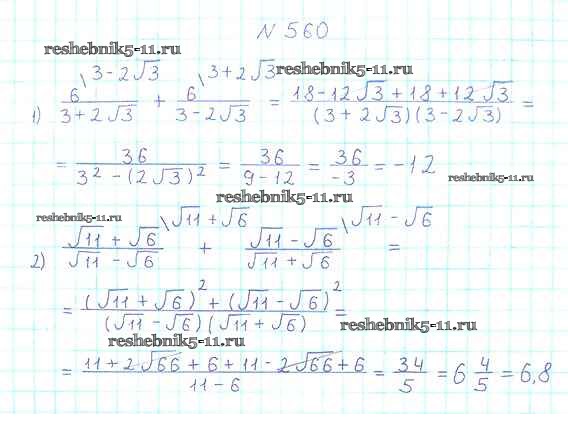 N 560
reshebnik5-11.ru
reshebnik5-11.ru
1) 6\3-2√3 / (3+2√3) + 6\3+2√3 / (3-2√3) = (18-12√3+18+12√3) / ((3+2√3)(3-2√3)) =
= 36 / (3² - (2√3)²) = 36 / (9-12) = 36 / -3 = -12
reshebnik5-11.ru
reshebnik5-11.ru
reshebnik5-11.ru
2) (√11+√6)\√11+√6 / (√11-√6) + (√11-√6)\√11-√6 / (√11+√6) =
= ((√11+√6)² + (√11-√6)²) / ((√11-√6)(√11+√6)) =
reshebnik5-11.ru
reshebnik5-11.ru
= (11+2√66+6+11-2√66+6) / (11-6) = 34/5 = 6 4/5 = 6,8